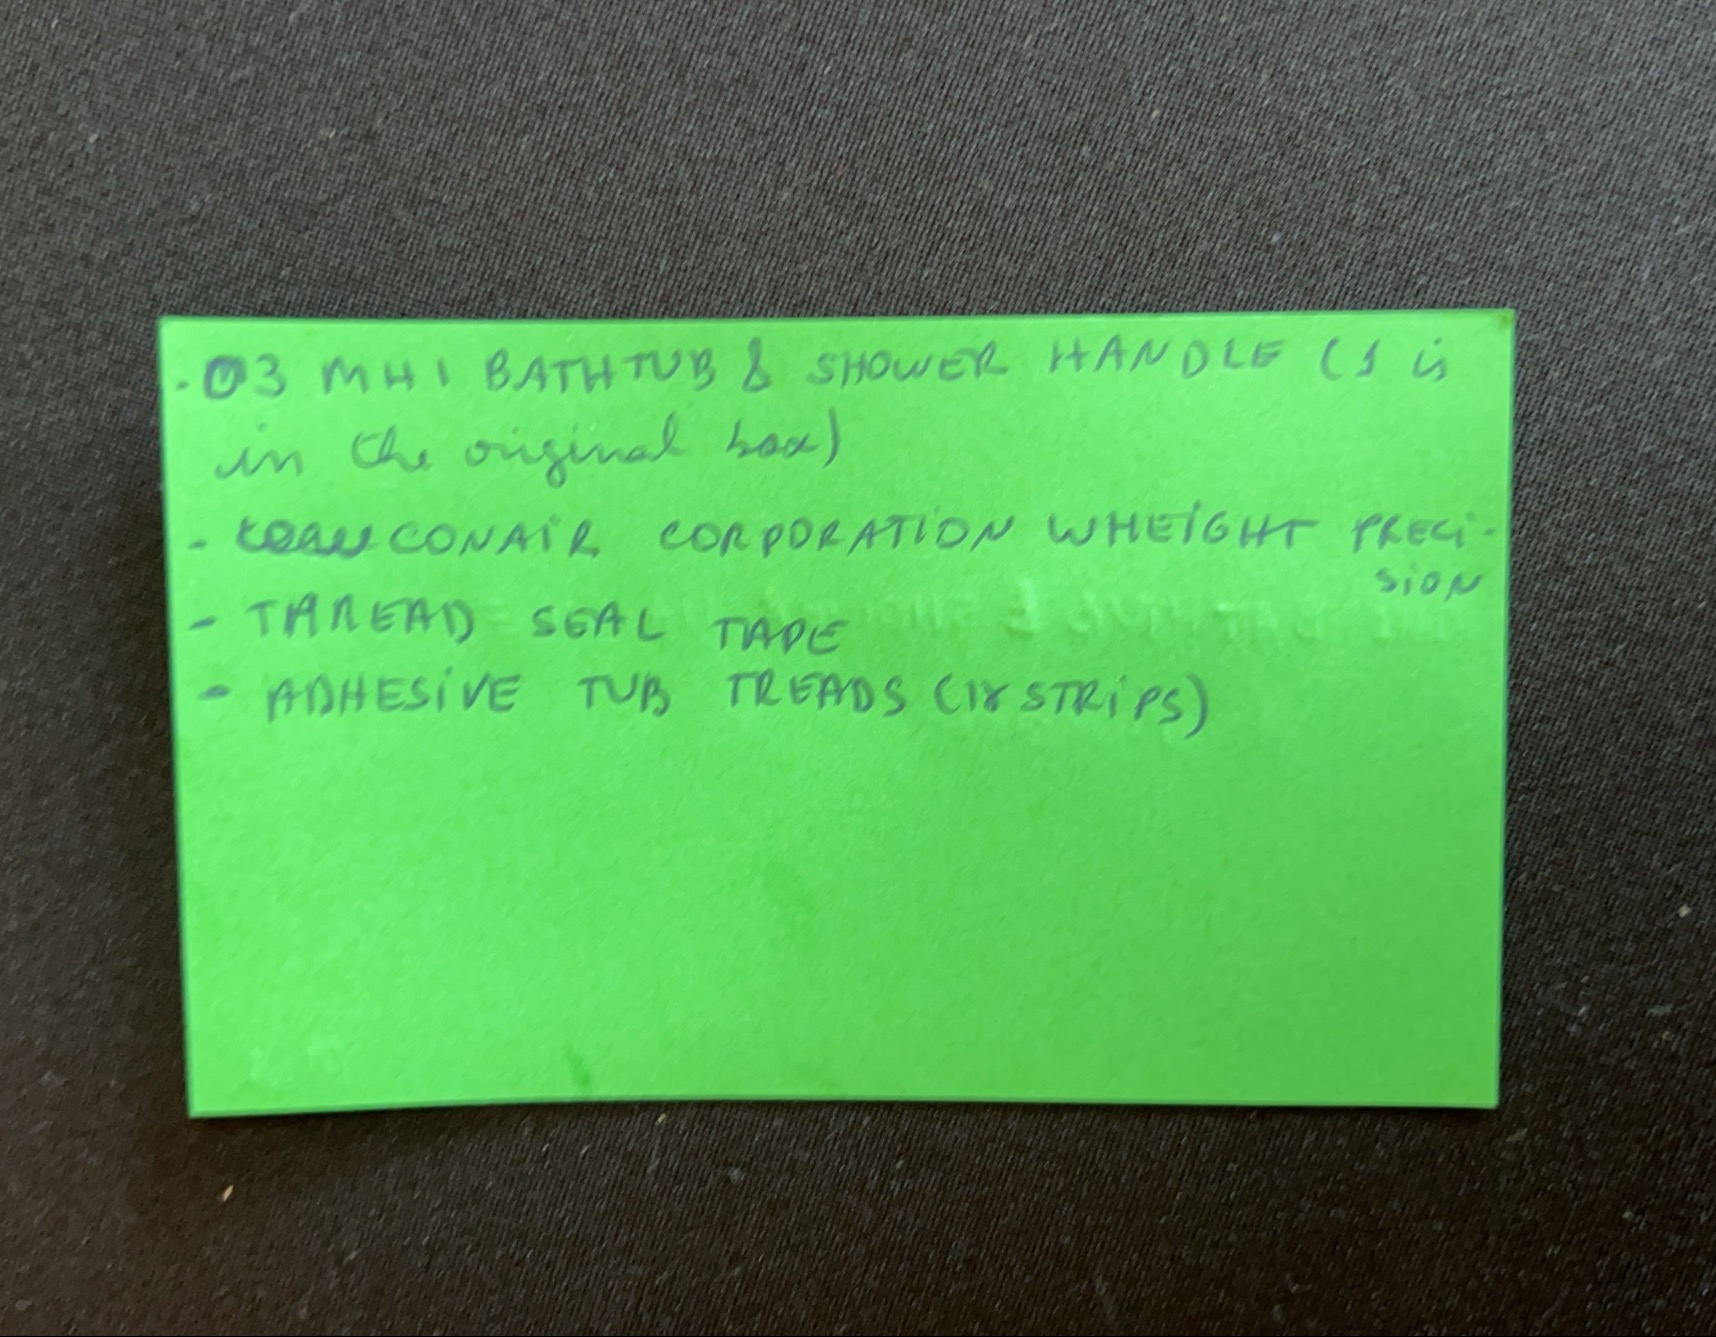 - 03 MHI BATHTUB & SHOWER HANDLE (1 is
in the original box)
- CONAIR CORPORATION WHEIGHT PRECI-
SION
- THREAD SEAL TAPE
- ADHESIVE TUB TREADS (18 STRIPS)